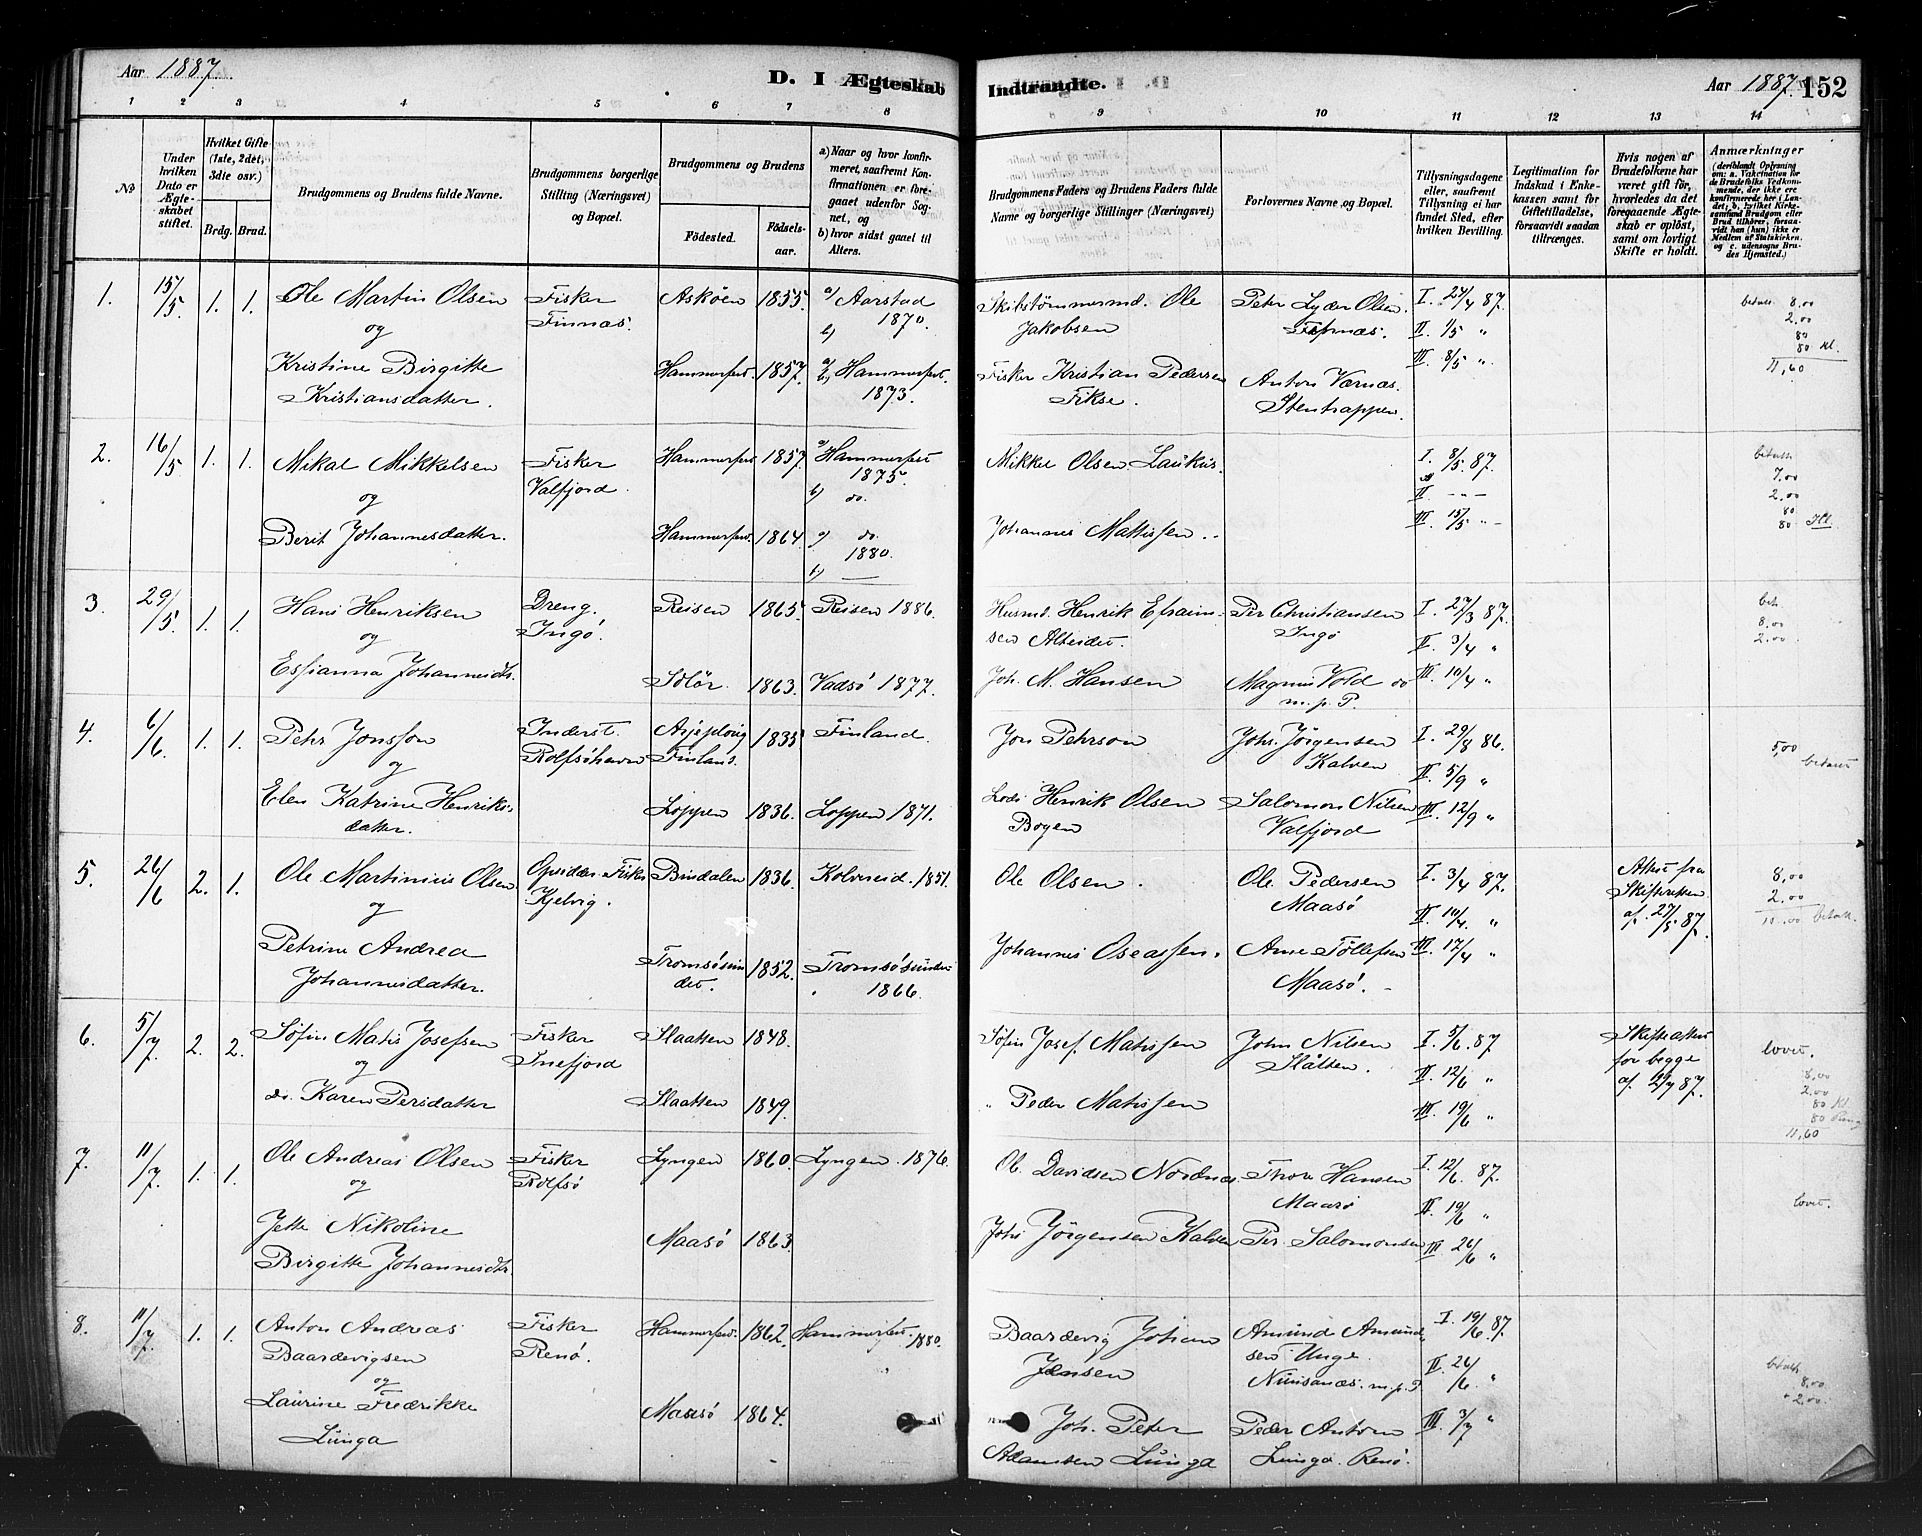 Aar 1887.
D. I Ægteskab
Indtrandte.
Aar 1887. 152
1 2 3 4 5 6 7 8 9 10 11 12 13 14
No
Under hvilken Dato er Ægteskabet stiftet.
Hvilket Gifte (1ste, 2det, 3die osv.)
Brdg. Brud.
Brudgommens og Brudens fulde Navne.
Brudgommens borgerlige Stilling (Næringsvei) og Bopæl.
Brudgommens og Brudens
Fødested. Fødselsaar.
a) Naar og hvor konfirmeret, saafremt Konfirmationen er foregaaet udenfor Sognet, og
b) hvor sidst gaaet til Alters.
Brudgommens Faders og Brudens Faders fulde Navne og borgerlige Stillinger (Næringsvei)
Forlovernes Navne og Bopæl.
Tillysningsdagene eller, saafremt Tillysning ei har fundet Sted, efter hvilken Bevilling.
Legitimation for Indskud i Enkekassen samt for Giftetilladelse, forsaavidt saadan tiltrænges.
Hvis nogen af Brudefolkene har været gift før, hvorledes da det foregaaende Ægteskab er opløst, samt om lovligt Skifte er holdt.
Anmærkninger
(deriblandt Oplysning om: a. Vakcination for de Brudefolks Vedkommende, der ikke ere konfirmerede her i Landet; b. hvilket Kirkesamfund Brudgom eller Brud tilhører, forsaavidt han (hun) ikke er Medlem af Statskirken, og c. udensogns Brudes Hjemsted.)
1. 15/5 1. 1. Ole Martin Olsen
og
Kristine Birgitte
Kristiansdatter.
Fisker
Finnæs.
Askøen 1855. a) Aarstad
1870.
b)
Hammerfest. 1857. a) b) Hammerfest.
1873.
Skibstømmermd. Ole
Jakobsen
Fisker Kristian Pedersen
Fikse.
Peter Lyder Olsen.
Anton Værnæs.
Stentrappen.
I. 24/4 87.
II. 1/5 "
III. 8/5 "
betalt 8,00
2,00
80
80 Kl.
11,60
2. 16/5 1. 1. Mikal Mikkelsen
og
Berit Johannesdatter.
Fisker
Valfjord.
Hammerfest 1857. a) Hammerfest
1875.
b) do.
Hammerfest. 1864. a) do.
1880.
b) —
Mikkel Olsen Laukus.
Johannes Mattissen.
I. 8/5. 87.
II. - - -
III. 15/5 "
betalt
7,00
2,00
80
80 Kl.
3. 29/5. 1. 1. Hans Henriksen
og
Essianna Johannesdtr.
Dreng.
Ingø.
Reisen 1865. Reisen 1886.
1863. Vadsø 1877.
Husmd. Henrik Efraimsen
Joh. M. Hansen
Per Christiansen
Ingø
Magnus Vold do
m.p.P.
I. 27/3 87.
II. 3/4 "
III. 10/4 "
bet.
8,00
2,00
4. 6/6. 1. 1. Pehr Jonsson
og
Elen Katrine Henriksdatter.
Inderst.
Rolfsøhavn
Arjeploug
Finland.
1835 Finland.
Loppen 1836. Loppen 1871.
Jon Pehrson
Henrik Olsen
Bogen
Johs. Jørgensen
Kalven
Salomon Nilsen
Valfjord
I. 29/8 86.
II. 5/9 "
III. 12/9 "
5,00
betalt
5. 26/6 2. 1. Ole Martinius Olsen
og
Petrine Andrea
Johannesdatter.
Opsidder. Fisker
Kjelvig.
Bindalen 1836. Kolvereid. 1851.
Tromsøsundet. 1852. Tromsøsundet
1866.
Ole Olsen.
Johannes Oseassen.
Ole Pedersen
Maasø
Arne Tollefsen
Maasø.
I. 3/4 87.
II. 10/4. "
III. 17/4 "
Attest fra
Skifteretten
af. 27/5 87.
8,00
2,00
10,00 betalt.
6. 5/7. 2. 2. Søfin Matis Josefsen
og
do. Karen Persdatter
Fisker
Snefjord
Slaatten 1848.
Slaatten 1849.
Søfin Josef Matissen
" Peder Matissen
John Nilsen
Slåtten.
I. 5/6. 87
II. 12/6 "
III. 19/6 "
Skifteattest
for begge
af. 2/7 87.
lovet.
8,00
2,00
80 Kl
80
11,60
7. 11/7. 1. 1. Ole Andreas Olsen
og
Jette Nikoline
Birgitte Johannesdtr.
Fisker
Rolfsø
Lyngen 1860. Lyngen. 1876.
Maasø 1863.
Ol. Davidsen Nordnæs.
Johs Jørgensen Kalven
Thor Hansen
Maasø
Per. Salomonsen
I. 12/6. 87.
II. 19/6 "
III. 26/6 "
lovet.
8. 11/7. 1. 1. Anton Andreas
Baardevigsen
og
Laurine Fredrikke
Lunga
Fisker
Renø.
Hammerfest. 1862. Hammerfest. 1880.
Maasø 1864.
Baardevig Johan
Jensen
Joh. Peter
Adamsen Lunga
Amund Amundsen
Unge.
m.p.P
Peder Antom
Lunga. Renø.
I. 19/6. 87.
II. 26/6. "
III. 3/7 "
betalt.
8,00
+ 2,00.